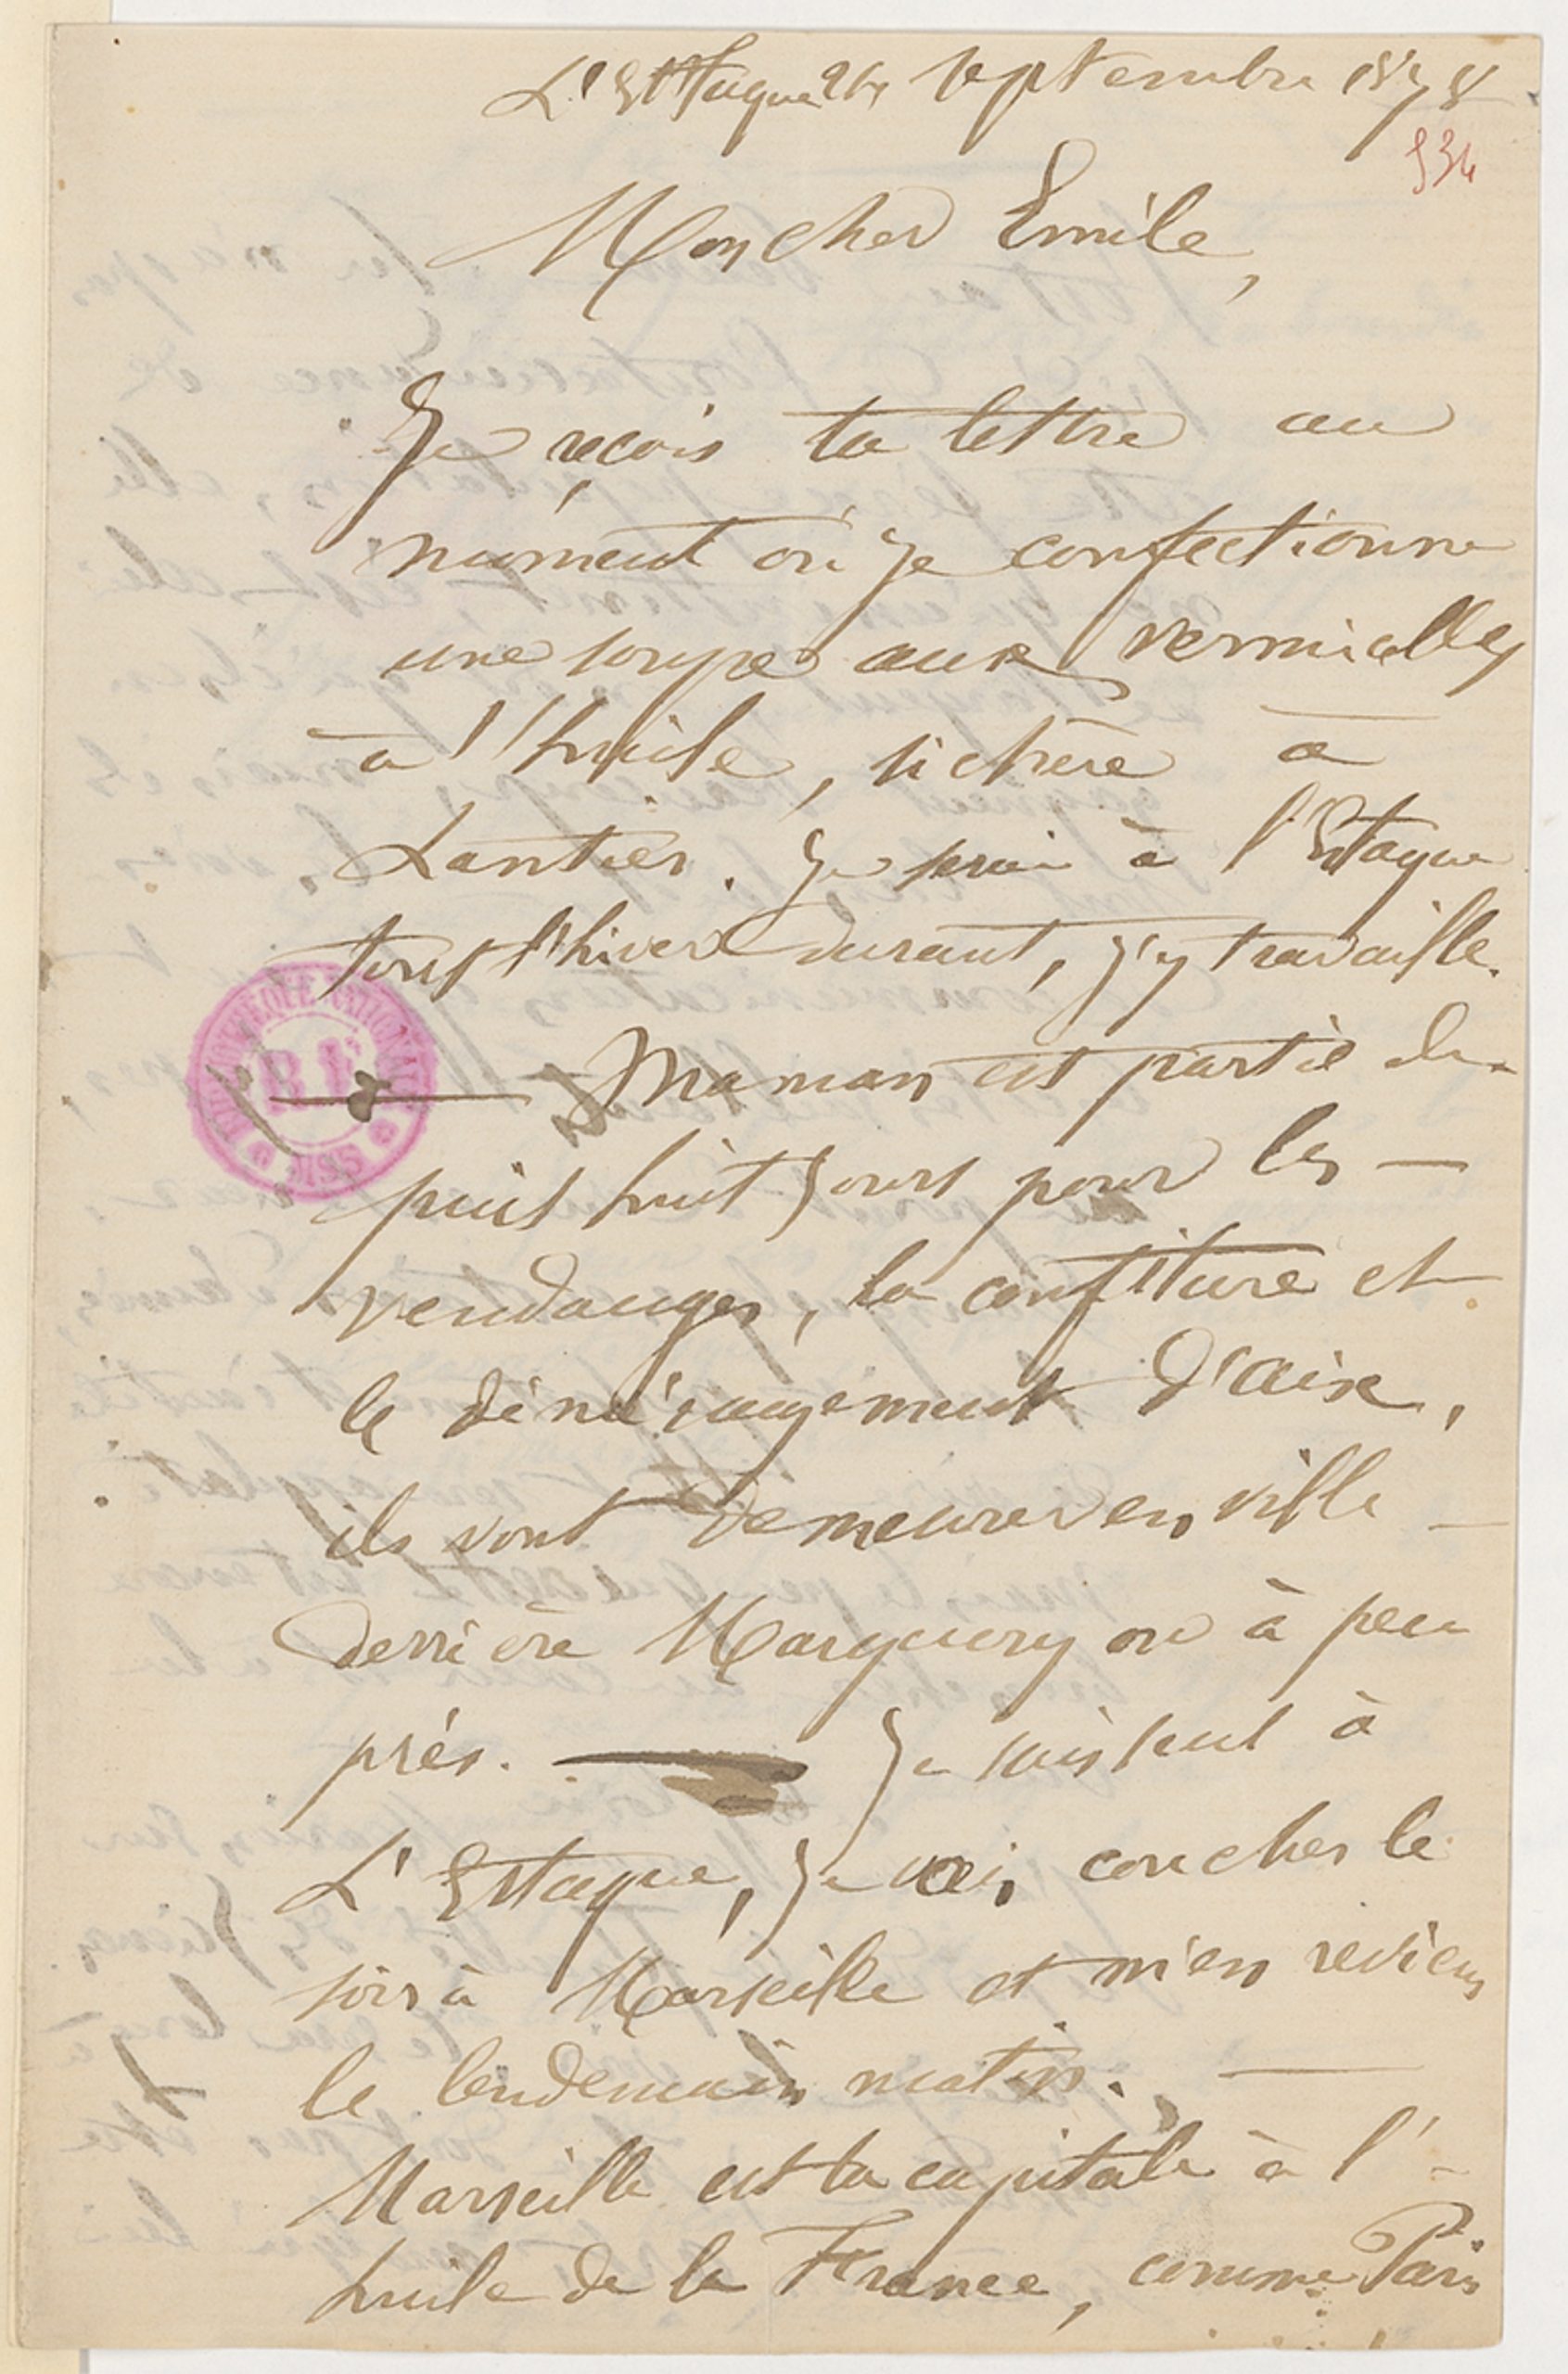 L'Estaque 24 septembre 1878
534
Mon cher Emile,
Je reçois ta lettre au
moment où je confectionne
une soupe aux vermicelles
à l'huile, si chère à
Lantier. Je serai à l'Estaque
tout l'hiver durant, j'y travaille.
Maman est partie de-
puis huit jours pour les —
vendanges, la confiture et
le déménagement d'aix,
ils vont demeurer en ville —
derrière Marguery ou à peu
près. — Je suis seul à
L'Estaque, je vais coucher le
soir à Marseille et m'en reviens
le lendemain matin. —
Marseille est la capitale à l'-
huile de la France, comme Paris
BIBLIOTHEQUE NATIONALE
R.F.